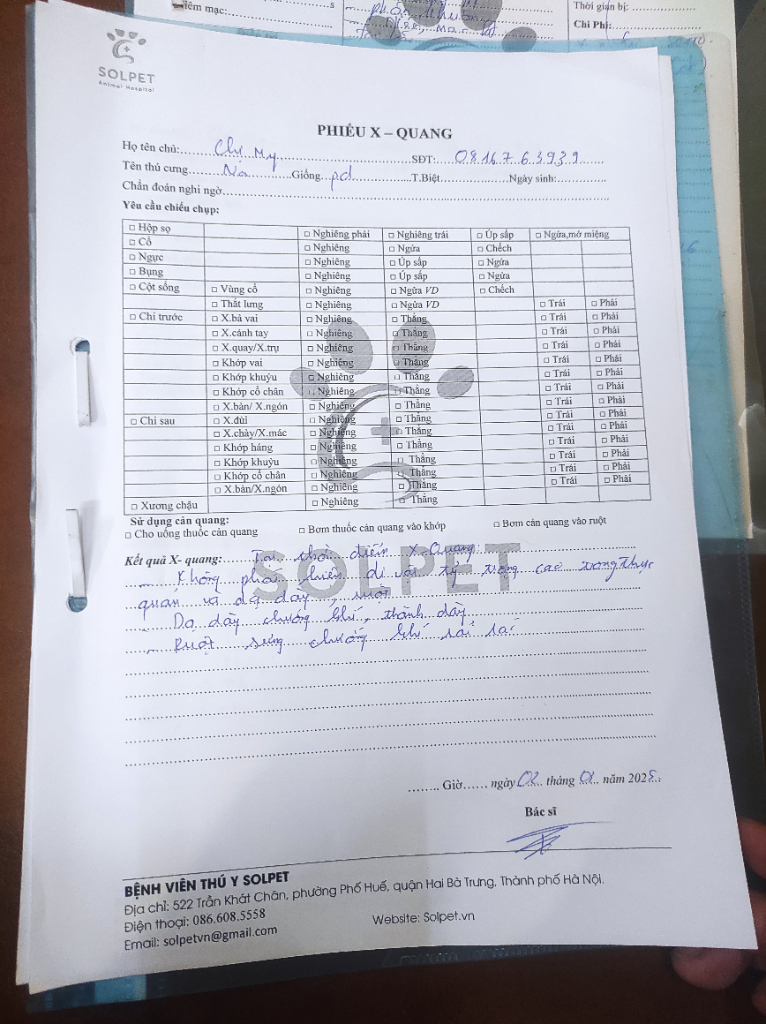 iêm mạc:
Thời gian bị:
Chi Phí:
SOLPET
Animal Hospital
PHIẾU X – QUANG
Họ tên chủ: Chị My SĐT: 0816763939
Tên thú cưng Na Giống pd T.Biệt Ngày sinh:
Chẩn đoán nghi ngờ
Yêu cầu chiếu chụp:
□ Hộp sọ □ Nghiêng phải □ Nghiêng trái □ Úp sấp □ Ngửa,mở miệng
□ Cổ □ Nghiêng □ Ngửa □ Chếch
□ Ngực □ Nghiêng □ Úp sấp □ Ngửa
□ Bụng □ Nghiêng □ Úp sấp □ Ngửa
□ Cột sống □ Vùng cổ □ Nghiêng □ Ngửa VD □ Chếch
□ Thắt lưng □ Nghiêng □ Ngửa VD □ Trái □ Phải
□ Chi trước □ X.bả vai □ Nghiêng □ Thẳng □ Trái □ Phải
□ X.cánh tay □ Nghiêng □ Thẳng □ Trái □ Phải
□ X.quay/X.trụ □ Nghiêng □ Thẳng □ Trái □ Phải
□ Khớp vai □ Nghiêng □ Thẳng □ Trái □ Phải
□ Khớp khuỷu □ Nghiêng □ Thẳng □ Trái □ Phải
□ Khớp cổ chân □ Nghiêng □ Thẳng □ Trái □ Phải
□ X.bàn/ X.ngón □ Nghiêng □ Thẳng □ Trái □ Phải
□ Chi sau □ X.đùi □ Nghiêng □ Thẳng □ Trái □ Phải
□ X.chày/X.mác □ Nghiêng □ Thẳng □ Trái □ Phải
□ Khớp háng □ Nghiêng □ Thẳng □ Trái □ Phải
□ Khớp khuỷu □ Nghiêng □ Thẳng □ Trái □ Phải
□ Khớp cổ chân □ Nghiêng □ Thẳng □ Trái □ Phải
□ X.bàn/X.ngón □ Nghiêng □ Thẳng
□ Xương chậu □ Nghiêng □ Thẳng
Sử dụng cản quang:
□ Cho uống thuốc cản quang □ Bơm thuốc cản quang vào khớp □ Bơm cản quang vào ruột
Kết quả X- quang: Tại thời điểm X Quang:
- Không phát hiện dị vật tỷ trọng cao trong thực
quản và dạ dày, ruột
- Dạ dày chướng khí, thành dày
- Ruột sưng chướng khí rải rác
SOLPET
Giờ ngày 02 tháng 01 năm 2025
Bác sĩ
BỆNH VIỆN THÚ Y SOLPET
Địa chỉ: 522 Trần Khát Chân, phường Phố Huế, quận Hai Bà Trưng, Thành phố Hà Nội.
Điện thoại: 086.608.5558 Website: Solpet.vn
Email: solpetvn@gmail.com